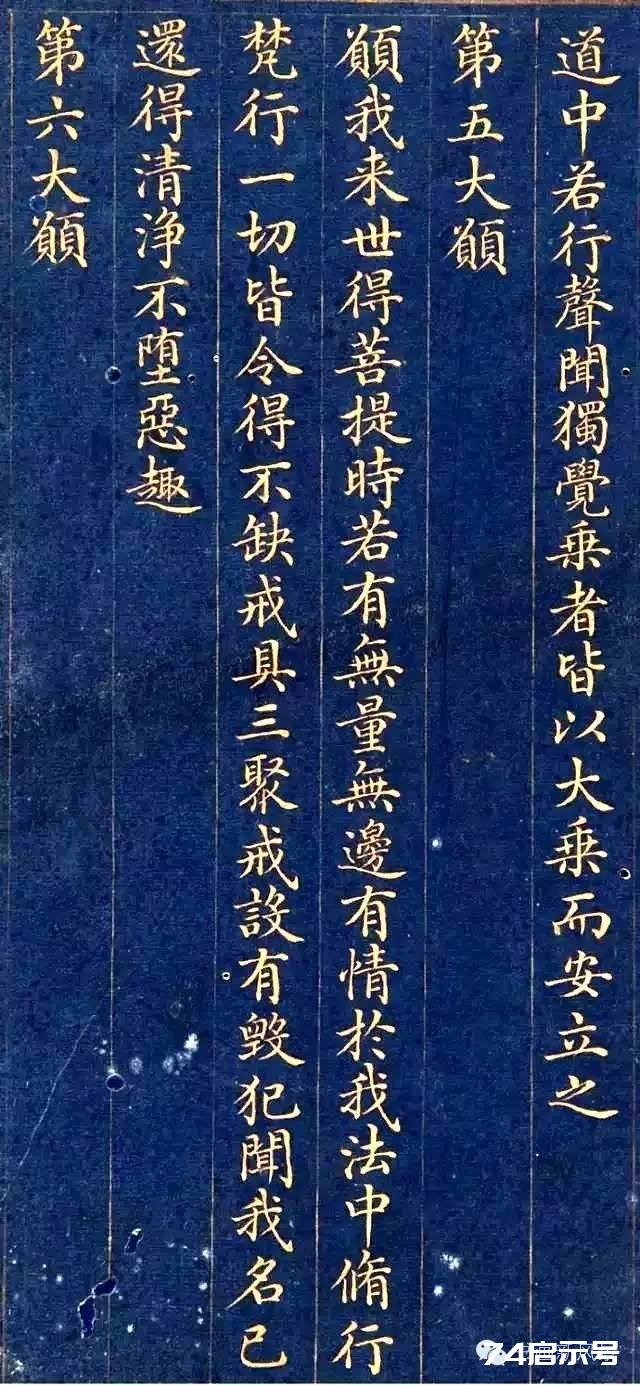 道中若行聲聞獨覺乘者皆以大乘而安立之
第五大願
願我来世得菩提時若有無量無邊有情於我法中脩行
梵行一切皆令得不缺戒具三聚戒設有毀犯聞我名已
還得清淨不墮惡趣
第六大願
启示号